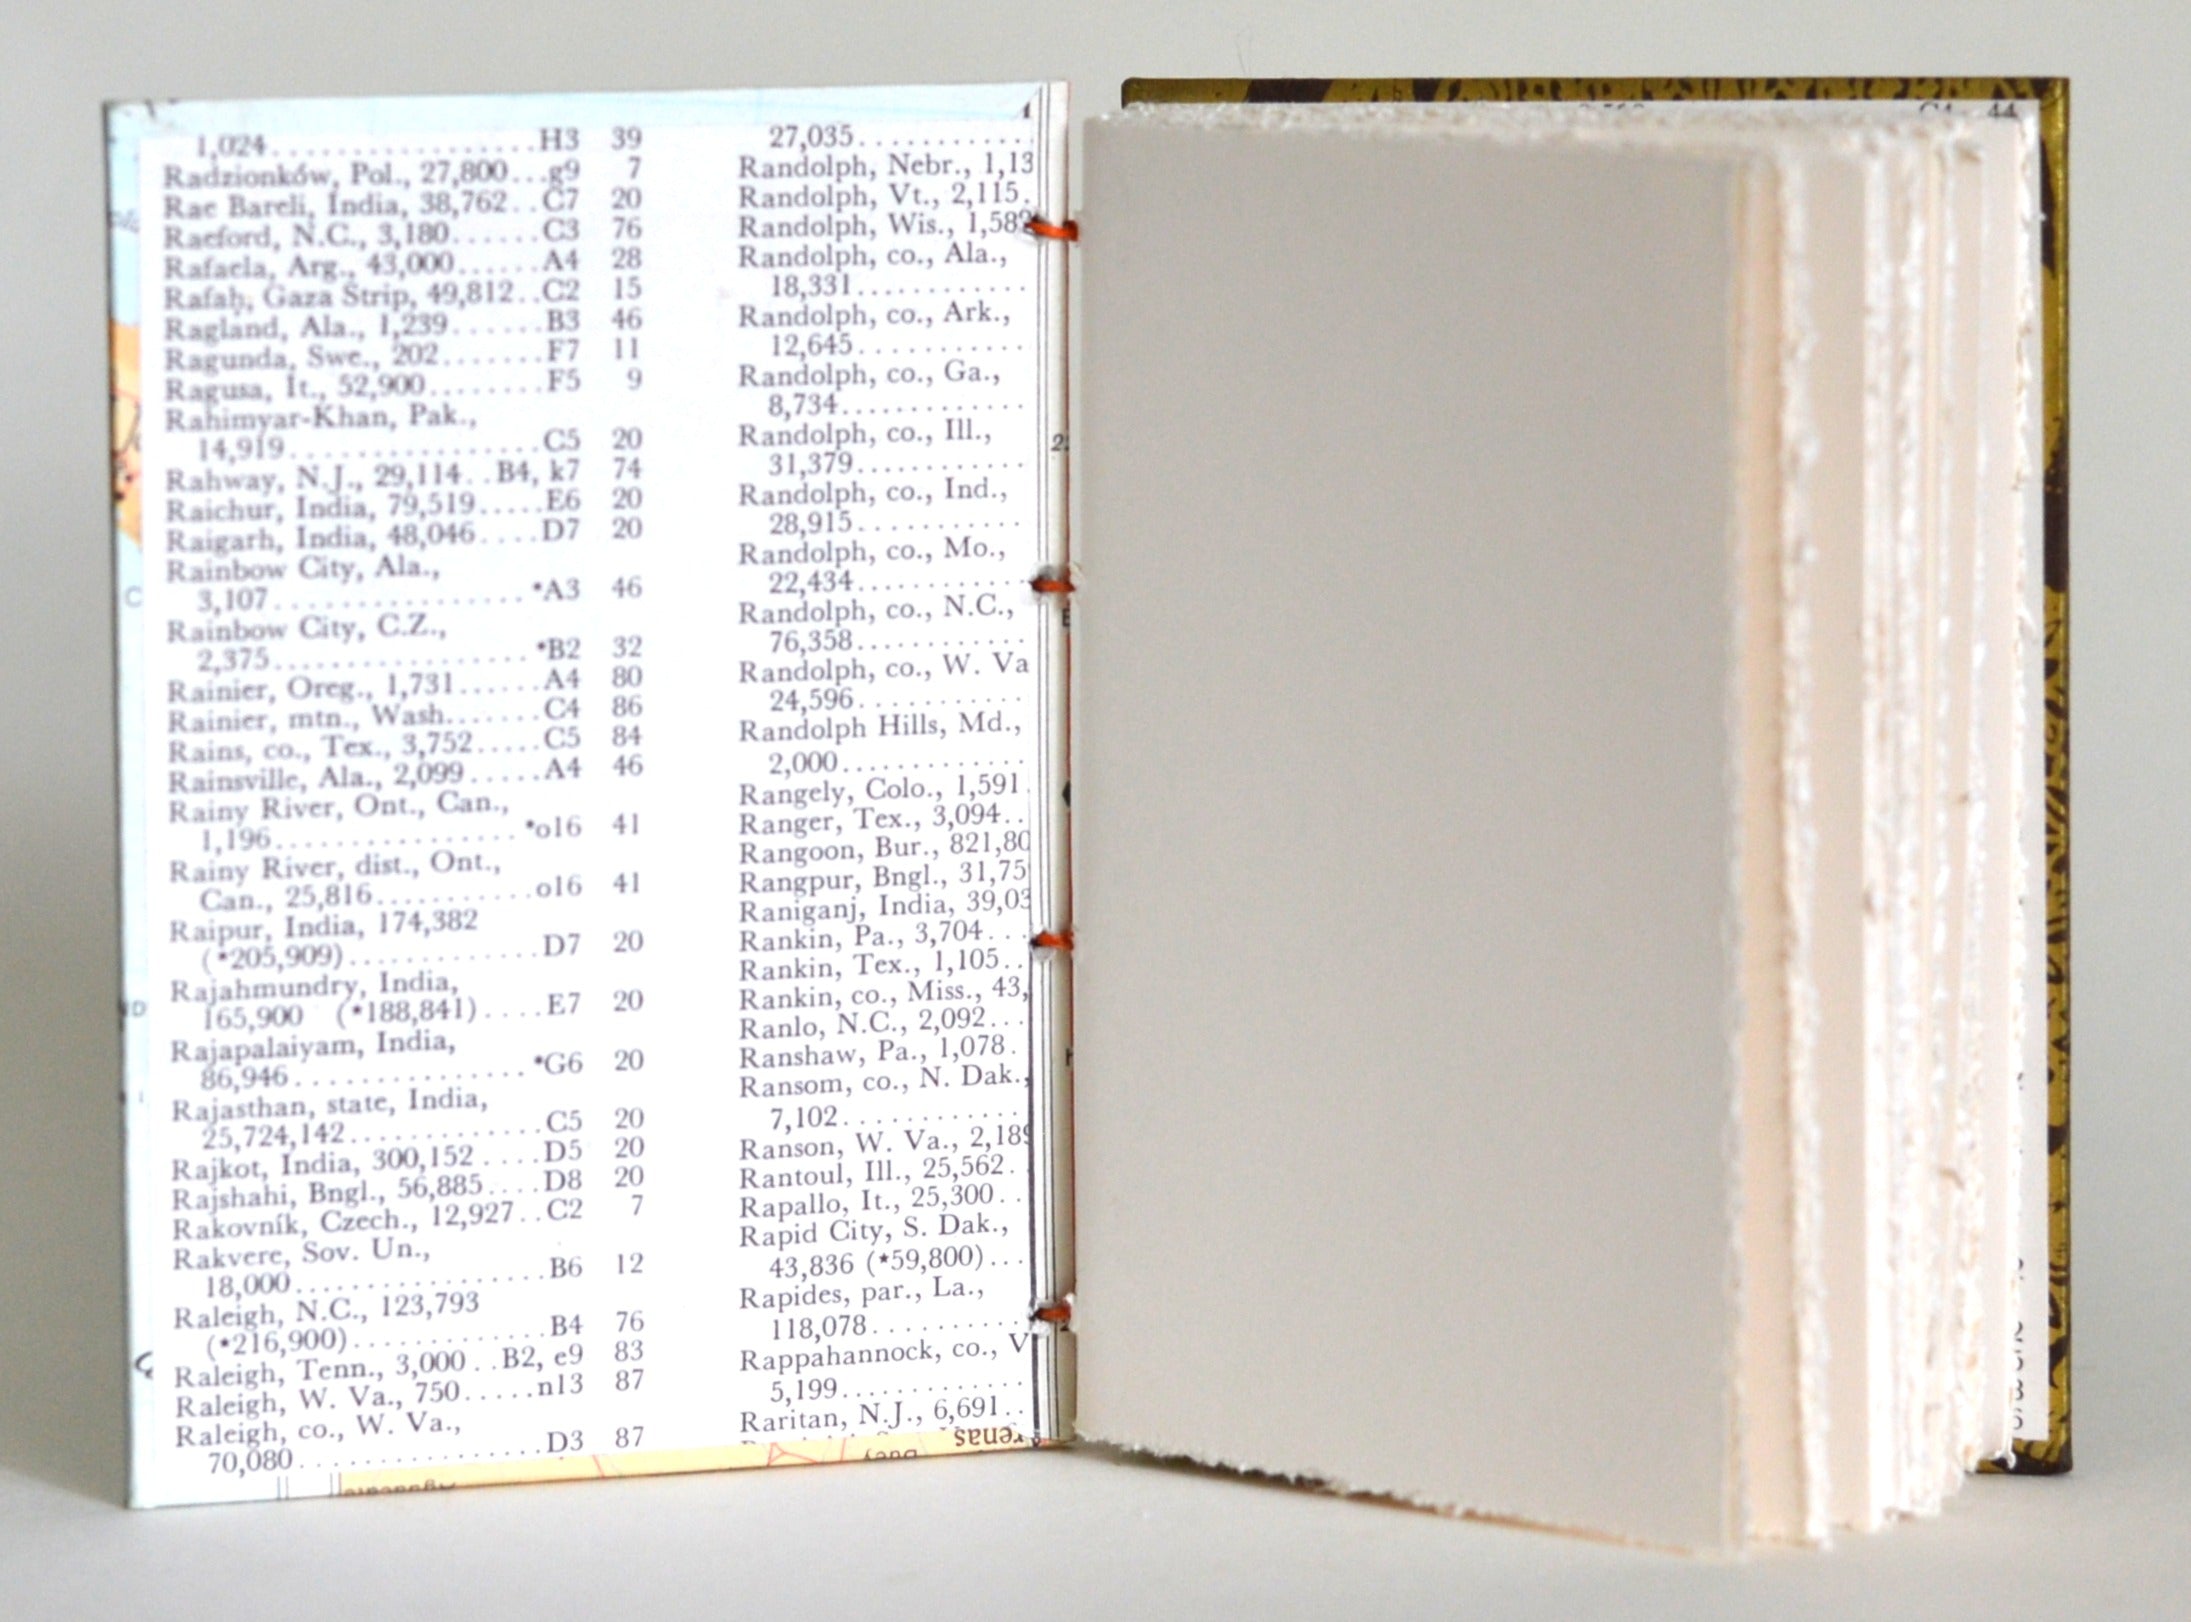 1,024..................H3 39
Radzionków, Pol., 27,800...g9 7
Rae Bareli, India, 38,762..C7 20
Raeford, N.C., 3,180......C3 76
Rafaela, Arg., 43,000......A4 28
Rafaḥ, Gaza Strip, 49,812..C2 15
Ragland, Ala., 1,239......B3 46
Ragunda, Swe., 202.......F7 11
Ragusa, It., 52,900........F5 9
Rahimyar-Khan, Pak.,
14,919.................C5 20
Rahway, N.J., 29,114..B4, k7 74
Raichur, India, 79,519.....E6 20
Raigarh, India, 48,046....D7 20
Rainbow City, Ala.,
3,107.................*A3 46
Rainbow City, C.Z.,
2,375.................*B2 32
Rainier, Oreg., 1,731......A4 80
Rainier, mtn., Wash.......C4 86
Rains, co., Tex., 3,752.....C5 84
Rainsville, Ala., 2,099.....A4 46
Rainy River, Ont., Can.,
1,196................*o16 41
Rainy River, dist., Ont.,
Can., 25,816..........o16 41
Raipur, India, 174,382
(*205,909).............D7 20
Rajahmundry, India,
165,900 (*188,841)....E7 20
Rajapalaiyam, India,
86,946...............*G6 20
Rajasthan, state, India,
25,724,142.............C5 20
Rajkot, India, 300,152....D5 20
Rajshahi, Bngl., 56,885....D8 20
Rakovník, Czech., 12,927..C2 7
Rakvere, Sov. Un.,
18,000.................B6 12
Raleigh, N.C., 123,793
(*216,900).............B4 76
Raleigh, Tenn., 3,000..B2, e9 83
Raleigh, W. Va., 750.....n13 87
Raleigh, co., W. Va.,
70,080.................D3 87
27,035............
Randolph, Nebr., 1,13
Randolph, Vt., 2,115.
Randolph, Wis., 1,582
Randolph, co., Ala.,
18,331............
Randolph, co., Ark.,
12,645............
Randolph, co., Ga.,
8,734.............
Randolph, co., Ill.,
31,379............
Randolph, co., Ind.,
28,915............
Randolph, co., Mo.,
22,434............
Randolph, co., N.C.,
76,358............
Randolph, co., W. Va
24,596............
Randolph Hills, Md.,
2,000.............
Rangely, Colo., 1,591
Ranger, Tex., 3,094..
Rangoon, Bur., 821,80
Rangpur, Bngl., 31,75
Raniganj, India, 39,03
Rankin, Pa., 3,704...
Rankin, Tex., 1,105..
Rankin, co., Miss., 43,
Ranlo, N.C., 2,092...
Ranshaw, Pa., 1,078.
Ransom, co., N. Dak.,
7,102.............
Ranson, W. Va., 2,189
Rantoul, Ill., 25,562.
Rapallo, It., 25,300..
Rapid City, S. Dak.,
43,836 (*59,800)...
Rapides, par., La.,
118,078...........
Rappahannock, co., V
5,199.............
Raritan, N.J., 6,691..
renas
44